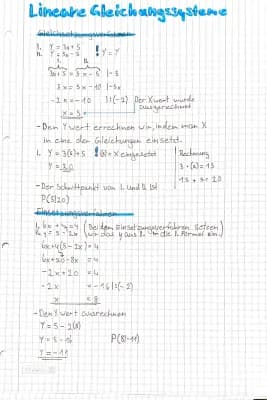 Lineare Gleichungssysteme
Gleichsetzungsverfahren
I. Y = 3x+5 ! Y = Y
II. Y = 5x-5
I. II.
3x+5 = 5x-5 |-5
3x = 5x-10 |-5x
-2x = -10 |:(-2) Der X Wert wurde
x = 5 ausgerechnet
- Den Y Wert errechnen wir, indem man X
in eine der Gleichungen einsetzt.
I. Y = 3(5)+5 ! X eingesetzt Rechnung
Y = 20 3·(5) = 15
15+5 = 20
- Der Schnittpunkt von I. und II. ist
P(5|20)
Einsetzungsverfahren
I. 6x+4y=4 (Bei dem Einsetzungsverfahren setzen
II. y = 5-2x wir das y aus II. in die I. Formel ein.)
6x+4(5-2x) = 4
6x+20-8x = 4
-2x+20 = 4
-2x = -16 |:(-2)
x = 8
- Den Y Wert ausrechnen
Y = 5-2(8)
Y = 5-16 P(8|-11)
Y = -11